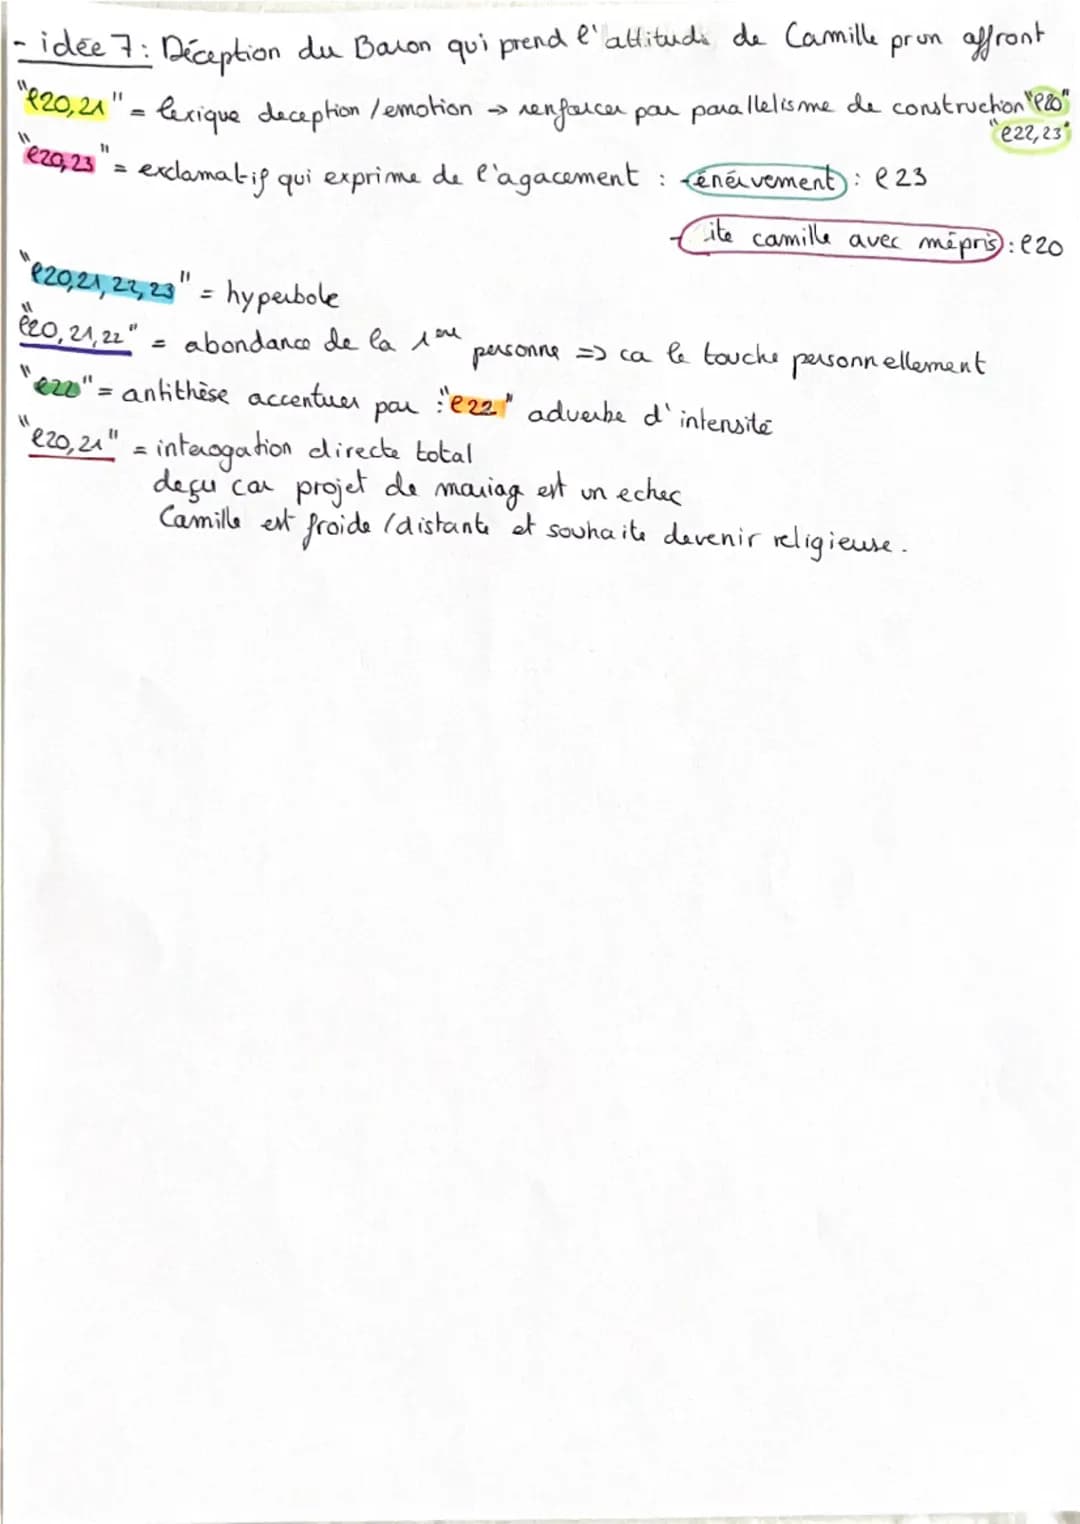 - idée 7: Déception du Baron qui prend l'attitude de Camille pr un affront
"l20,21" = lexique deception / emotion → renforcer par parallelisme de construction "l20"
"l22,23"
"l20,23" = exclamatif qui exprime de l'agacement : - énérvement : l23
- ite camille avec mépris : l20
"l20,21,22,23" = hyperbole
"l20,21,22" = abondance de la 1ere personne => ca le touche personnellement
"l22" = antithèse accentuer par : "l22" adverbe d'intensité
"l20,21" = interogation directe total
deçu car projet de mariag est un echec
Camille est froide / distante et souhaite devenir religieuse.